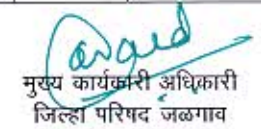 मुख्य कार्यकारी अधिकारी
जिल्हा परिषद जळगाव